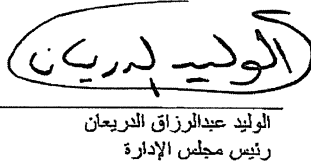 الوليد الدريعان
الوليد عبدالرزاق الدريعان
رئيس مجلس الإدارة